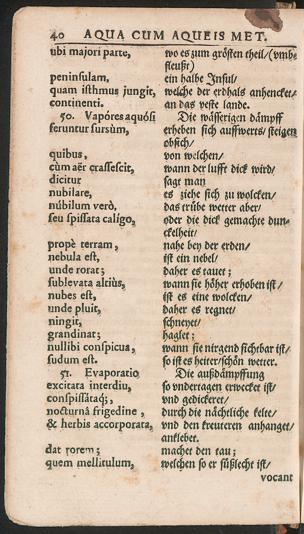 40 AQUA CUM AQUEIS MET.
ubi majori parte, wo es zum grösten theil/(vmb=
fleust)
peninsulam, ein halbe Insul/
quam isthmus jungit, welche der erdhals anhencket/
continenti. an das veste lande.
50. Vapóres aquósi Die wässerigen dämpff
feruntur sursùm, erheben sich auffwerts/ steigen
obsich/
quibus, von welchen/
cùm aër crassescit, wann der lufft dick wird/
dicitur sagt man
nubilare, es ziehe sich zu wolcken/
núbilum verò, das trübe wetter aber/
seu spissata calígo, oder die dick gemachte dun=
ckelheit/
propè terram, nahe bey der erden/
nebula est, ist ein nebel/
unde rorat; daher es tauet;
sublevata altiùs, wann sie höher erhoben ist/
nubes est, ist es eine wolcken/
unde pluit, daher es regnet/
ningit, schneyet/
grandinat; haglet;
nullibi conspicua, wann sie nirgend sichtbar ist/
sudum est. so ist es heiter/schön wetter.
51. Evaporatio Die außdämpffung
excitata interdiu, so vndertagen erwecket ist/
conspissátaq;, vnd gedickeret/
nocturnâ frigedine, durch die nächtliche kelte/
& herbis accorporata, vnd den kreuteren anhanget/
anklebet.
dat rorem; machet den tau;
quem mellitulum, welchen so er süßlecht ist/
vocant